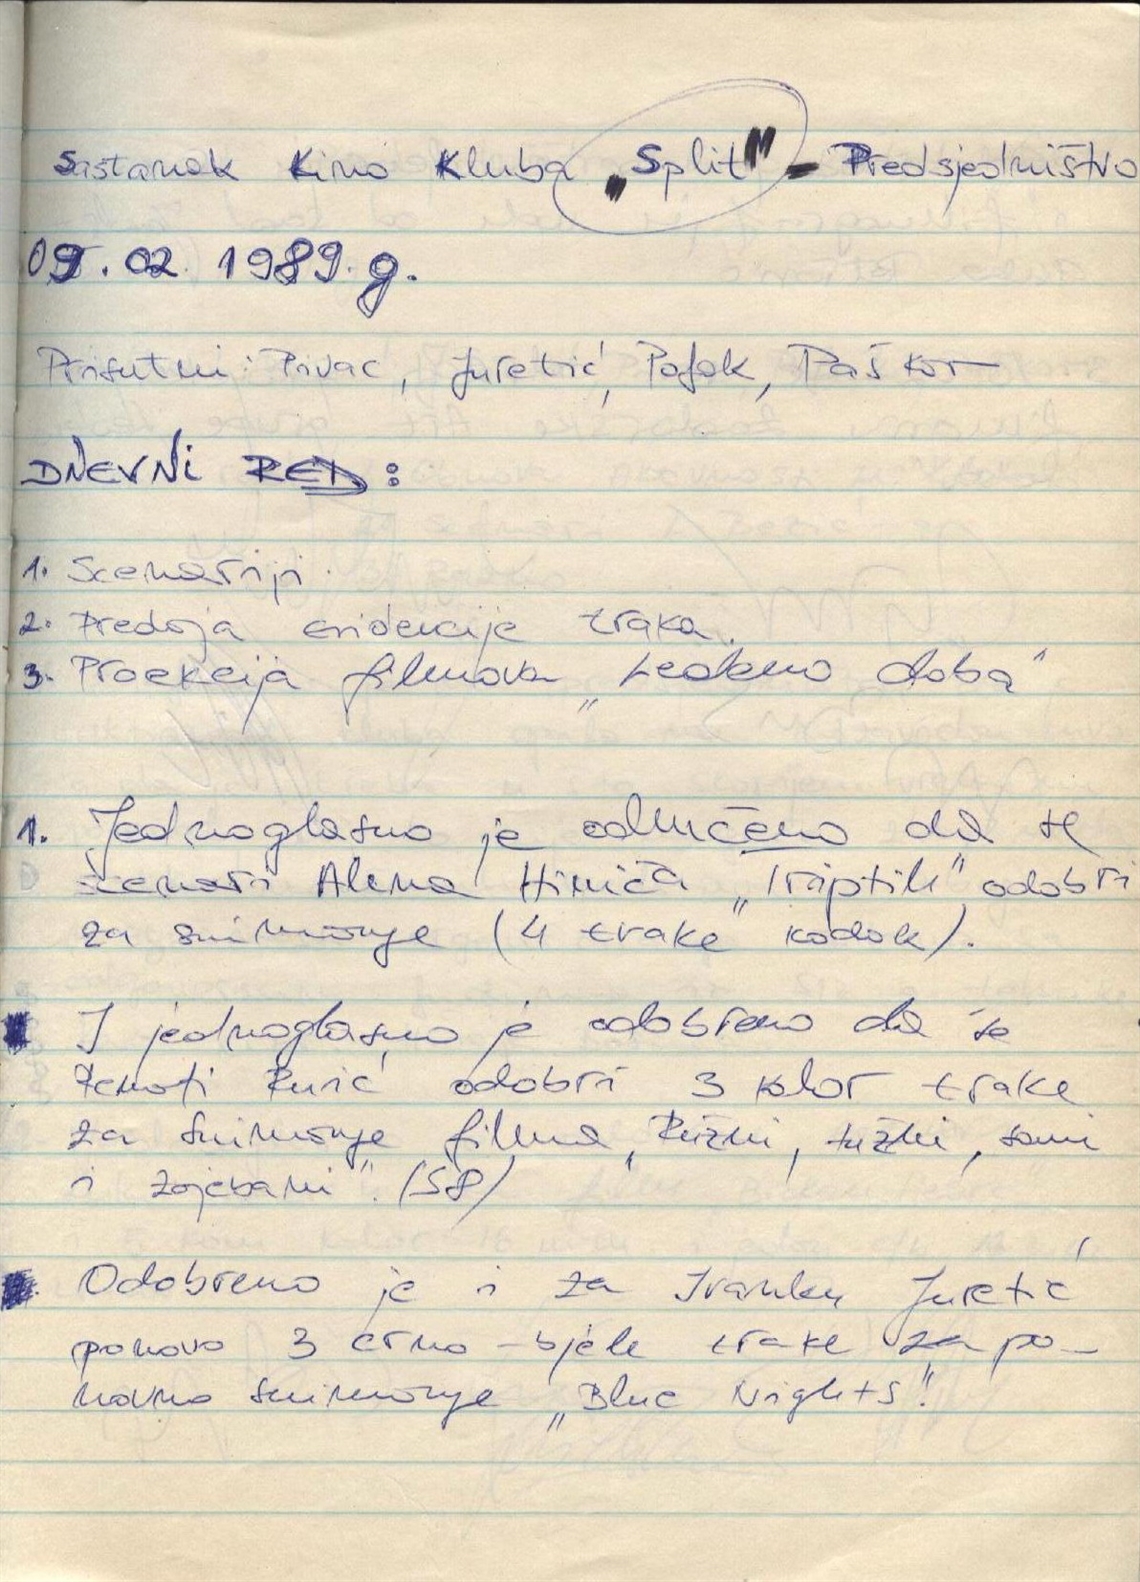 Sastanak Kino Kluba "Split" - Predsjedništvo
09.02.1989.g.
Prisutni: Pivac, Juretić, Poljak, Paškov
DNEVNI RED:
1. Scenariji.
2. Predaja evidencije traka.
3. Proekcija filmova „Ledeno doba"
1. Jednoglasno je odlučeno da se
scenari Alena "Triptih" odobri
za snimanje (4 trake kodak).
I jednoglasno je odobreno da se
odobri 3 kolor trake
za snimanje filma „Ružni, tužni, sami
i zajebani". (S8)
Odobreno je i za Ivanku Juretić
ponovo 3 crno-bjele trake za po-
novno snimanje „Blue Nights".